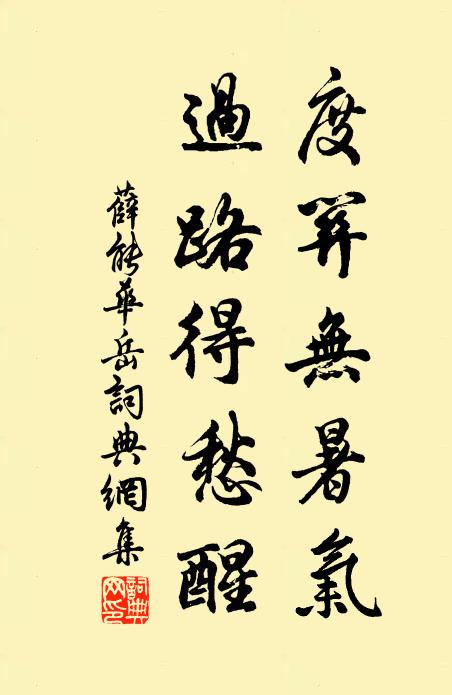 度關無暑氣
過路得愁醒
薛能華岳詞典網集
詞典
网印